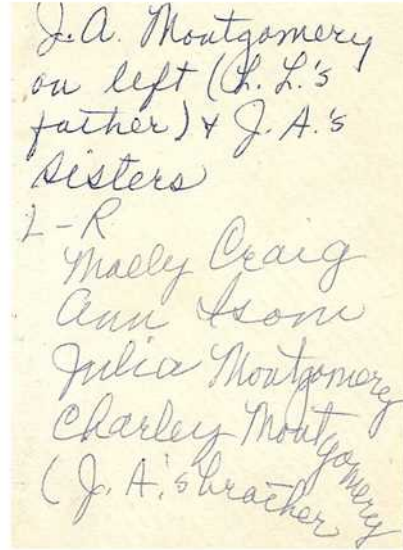 J. A. Montgomery
on left (L. L.'s
father) & J. A.'s
sisters
L-R
Molly Craig
Ann Isom
Julia Montgomery
Charley Montgomery
(J. A.'s brother